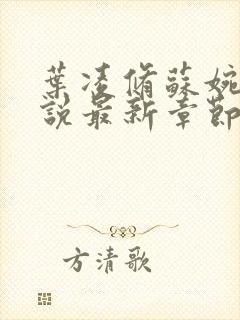 葉凌脩蘇婉
說最新章節
方清歌